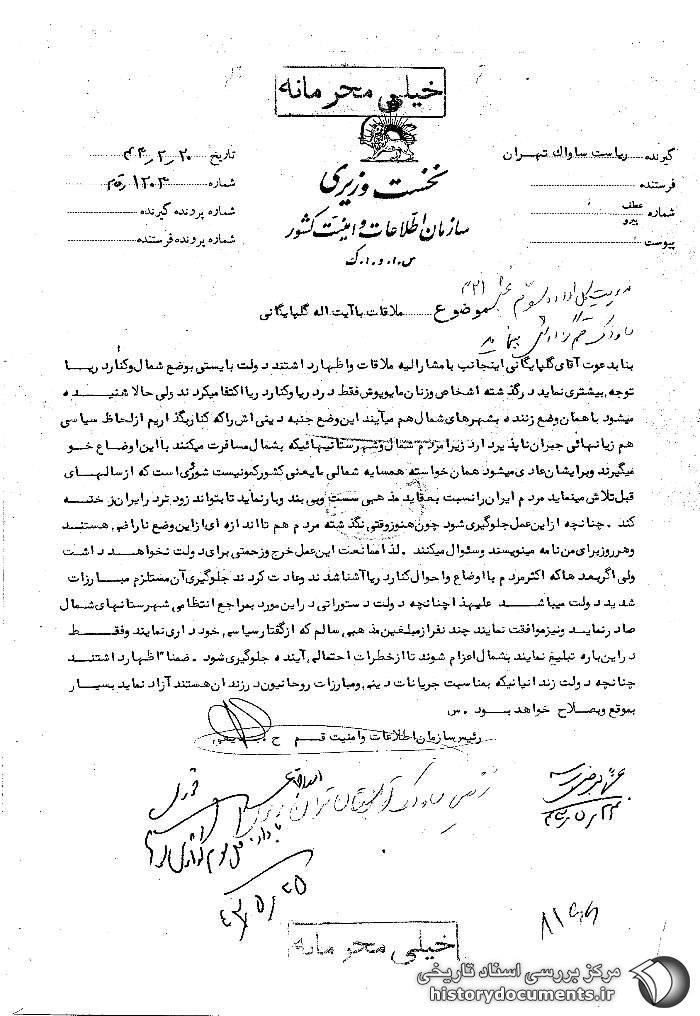 خیلی محرمانه
نخست وزیری
سازمان اطلاعات و امنیت کشور
س.ا.و.ا.ک
گیرنده ریاست ساواک تهران
فرستنده
شماره عطف پیرو
پیوست
تاریخ ۲۰_۲_۴۴
شماره ۱۲۰۴/قم
شماره پرونده گیرنده
شماره پرونده فرستنده
مدیریت کل اداره سوم ۳۲۱
موضوع ملاقات با آیت اله گلپایگانی
ساواک قم گزارش مینماید
بنا بدعوت آقای گلپایگانی اینجانب با مشارالیه ملاقات و اظهار داشتند دولت بایستی بوضع شمال و کنار دریا
توجه بیشتری نماید در گذشته اشخاص و زنان مایوپوش فقط در دریا و کنار دریا اکتفا میکردند ولی حالا شنیده
میشود با همان وضع زننده بشهرهای شمال هم میآیند این وضع جنبه دینی اش را که کنار بگذاریم از لحاظ سیاسی
هم زیانهائی جبران ناپذیر دارد زیرا مردم شمال و شهرستانیهائیکه بشمال مسافرت میکنند با این اوضاع خو
میگیرند و برایشان عادی میشود همان خواسته همسایه شمالی ما یعنی کشور کمونیست شوروی است که از سالهای
قبل تلاش مینماید مردم ایران را نسبت بعقاید مذهبی سست و بی بند و بار نماید تا بتواند زودتر در ایران رخنه
کند . چنانچه از این عمل جلوگیری شود چون هنوز وقتی نگذشته مردم هم تا اندازه ای از این وضع ناراضی هستند
و هر روز برای من نامه مینویسند و سئوال میکنند . لذا ممانعت این عمل خرج و زحمتی برای دولت نخواهد داشت
ولی اگر بعدها که اکثر مردم با اوضاع و احوال کنار دریا آشنا شدند و عادت کردند جلوگیری آن مستلزم مبارزات
شدید دولت میباشد علیهذا چنانچه دولت دستوراتی در این مورد بمراجع انتظامی شهرستانهای شمال
صادر نماید و نیز موافقت نمایند چند نفر از مبلغین مذهبی سالم که از گفتار سیاسی خودداری نمایند و فقط
در این باره تبلیغ نمایند بشمال اعزام شوند تا از خطرات احتمالی آینده جلوگیری شود . ضمنا" اظهار داشتند
چنانچه دولت زندانیانیکه بمناسبت جریانات دینی و مبارزات روحانیون در زندان هستند آزاد نماید بسیار
بموقع و بصلاح خواهد بود . س
رئیس سازمان اطلاعات و امنیت قم ح
رئیس ساواک تهران
خیلی محرمانه
مرکز بررسی اسناد تاریخی
historydocuments.ir